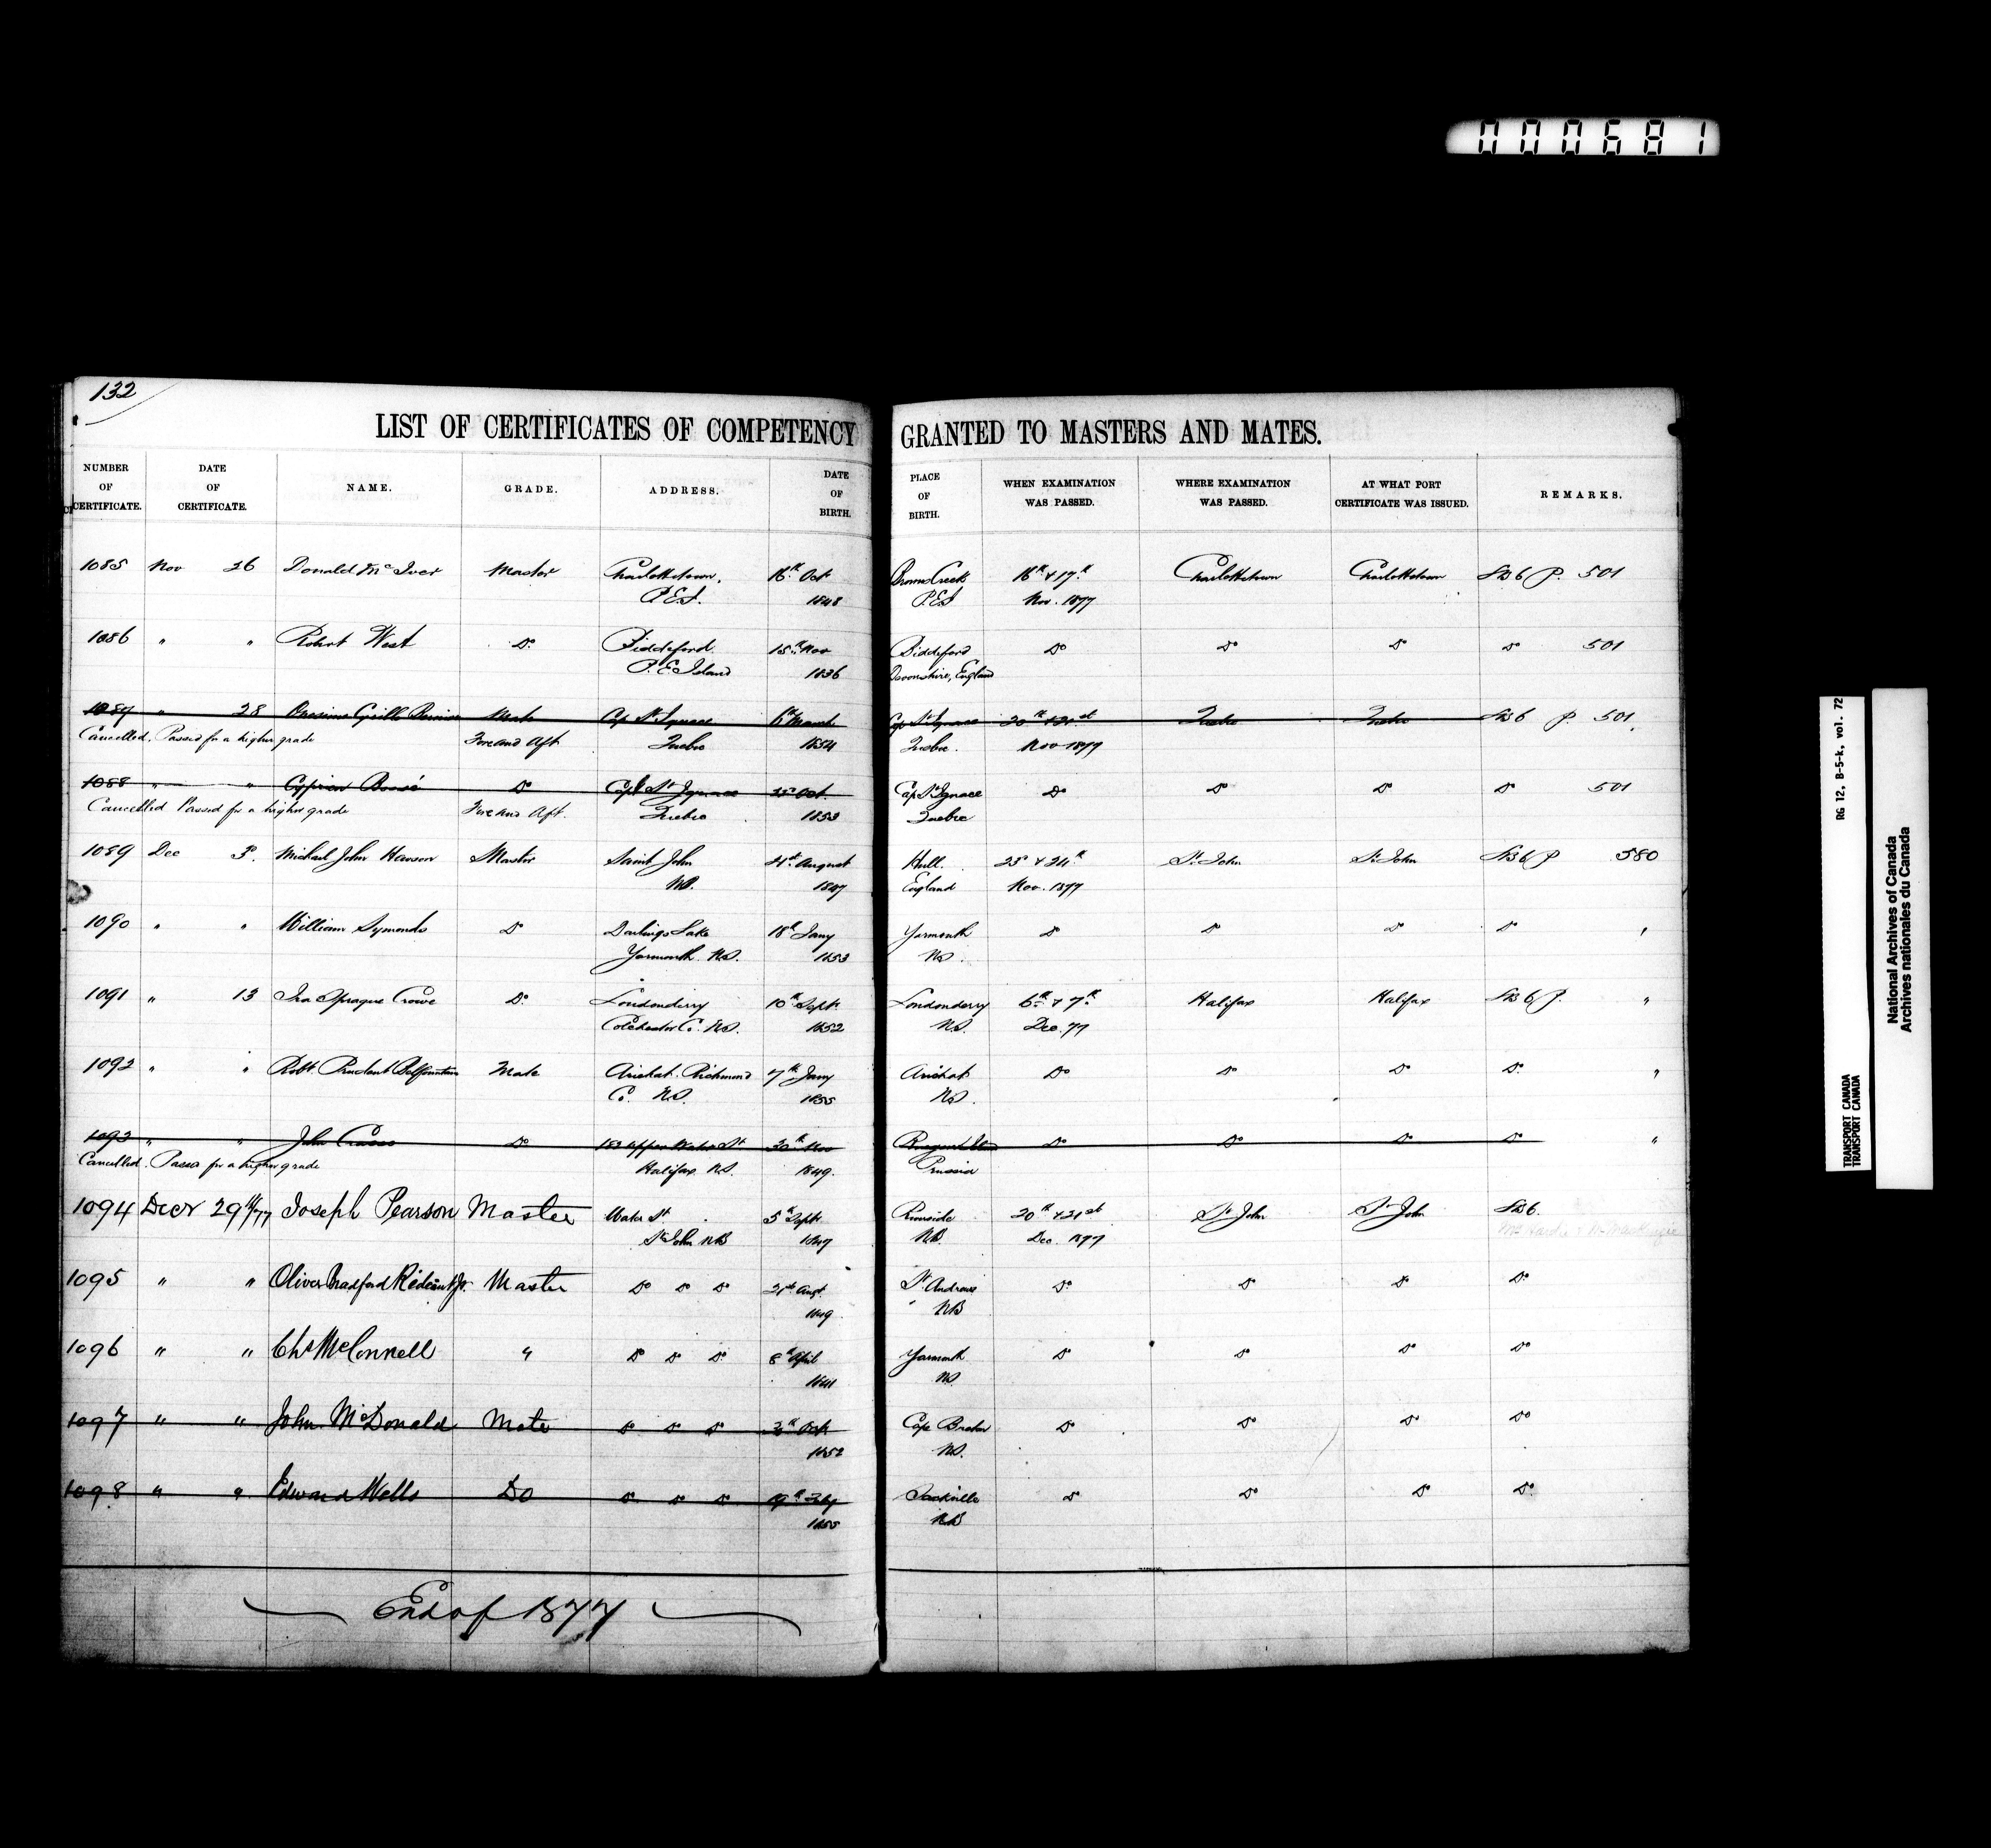 000681
132
LIST OF CERTIFICATES OF COMPETENCY GRANTED TO MASTERS AND MATES.
NUMBER OF CERTIFICATE. DATE OF CERTIFICATE. NAME. GRADE. ADDRESS. DATE OF BIRTH. PLACE OF BIRTH. WHEN EXAMINATION WAS PASSED. WHERE EXAMINATION WAS PASSED. AT WHAT PORT CERTIFICATE WAS ISSUED. REMARKS.
1085 Nov 26 Donald McIver Master Charlottetown, 16th Oct Creek 16th & 17th Charlottetown Charlottetown SB6 P. 501
P.E.I. 1848 P.E.I Nov. 1877
1086 " " Robert West Do Biddeford 15th Nov Biddeford Do Do Do Do 501
P.E. Island 1836 Devonshire, England
1087 " 28 Mate Cap St Ignace 6th March Cap St Ignace 20th & 21st Quebec Quebec SB6 P. 501
Cancelled. Passed for a higher grade Fore and Aft Quebec 1854 Quebec. Nov 1877
1088 " " Cyprien Do Cape St Ignace 25 Oct. Cap St Ignace Do Do Do Do 501
Cancelled Passed for a higher grade Fore and Aft. Quebec 1853 Quebec
1089 Dec 3. Michael John Master Saint John 21st August Hull. 23 & 24th St. John St. John SB6 P 580
NB. 1847 England Nov. 1877
1090 " " William Symonds Do Darlings Lake 18th Jany Yarmouth Do Do Do Do "
Yarmouth N.S. 1853 NS.
1091 " 13 Ira Sprague Crowe Do Londonderry 10th Sept. Londonderry 6th & 7th Halifax Halifax SB6 P. "
Colchester Co. N.S. 1852 N.S. Dec. 77
1092 " " Robt. Prudent Mate Arichat Richmond 7th Jany Arichat Do Do Do Do "
Co. N.S. 1855 NS.
1093 " " John Do 153 Upper Water St 30th Nov Do Do Do Do "
Cancelled. Passed for a higher grade Halifax N.S. 1849. Prussia
1094 Decr 29th/77 Joseph Pearson Master Water St 5th Sept 20th & 21st St John St John SB6.
St John NB 1847 NB. Dec. 1877
1095 " " Oliver Bradford Rideout Jr. Master Do Do Do 21st Augt. St Andrews Do Do Do Do
1849 NB
1096 " " Chs McConnell " Do Do Do 8th April Yarmouth Do Do Do Do
1841 NS
1097 " " John McDonald Mate Do Do Do Oct Cape Breton Do Do Do Do
1852 NS.
1098 " " Edward Wells Do Do Do Do 19th Feby Sackville Do Do Do Do
1855 NB
End of 1877
RG 12, B-5-k, vol. 72
TRANSPORT CANADA
TRANSPORT CANADA
National Archives of Canada
Archives nationales du Canada